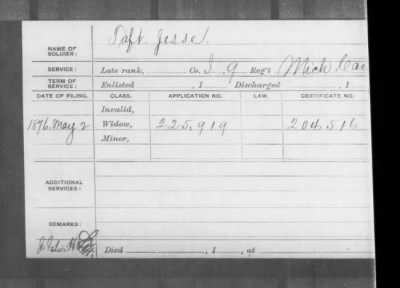 NAME OF SOLDIER: Taft, Jesse.
SERVICE: Late rank, Co. I, 9 Reg't Mich. Cav
TERM OF SERVICE: Enlisted , 1 Discharged , 1
DATE OF FILING. CLASS. APPLICATION NO. LAW. CERTIFICATE NO.
Invalid,
1876. May 2 Widow, 225,919 204,516
Minor,
ADDITIONAL SERVICES:
REMARKS:
Died , 1 , at